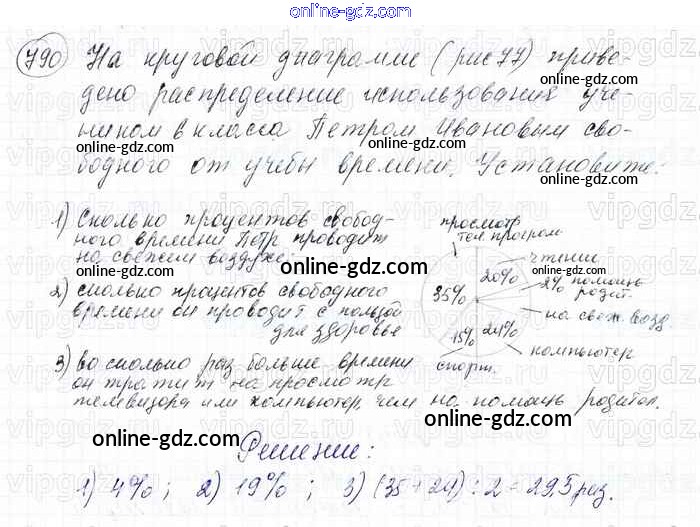 online-gdz.com
790 На круговой диаграмме (рис 77) приве-
online-gdz.com
дено распределение использования уче-
ником 6 класса Петром Ивановым сво-
online-gdz.com
бодного от учебы времени. Установите:
online-gdz.com
1) Сколько процентов свобод-
ного времени Петр проводит
на свежем воздухе;
online-gdz.com
2) сколько процентов свободного
времени он проводит с пользой
для здоровье
online-gdz.com
3) во сколько раз больше времени
он тратит на просмотр
телевизора или компьютер, чем на помощь родител.
просмотр
тел. програм
чтение
20%
2% помощь
родит.
35%
на свеж. возд.
15% 24%
компьютер
спорт.
online-gdz.com
Решение:
1) 4%; 2) 19%; 3) (35 + 24) : 2 = 29,5 раз.
online-gdz.com